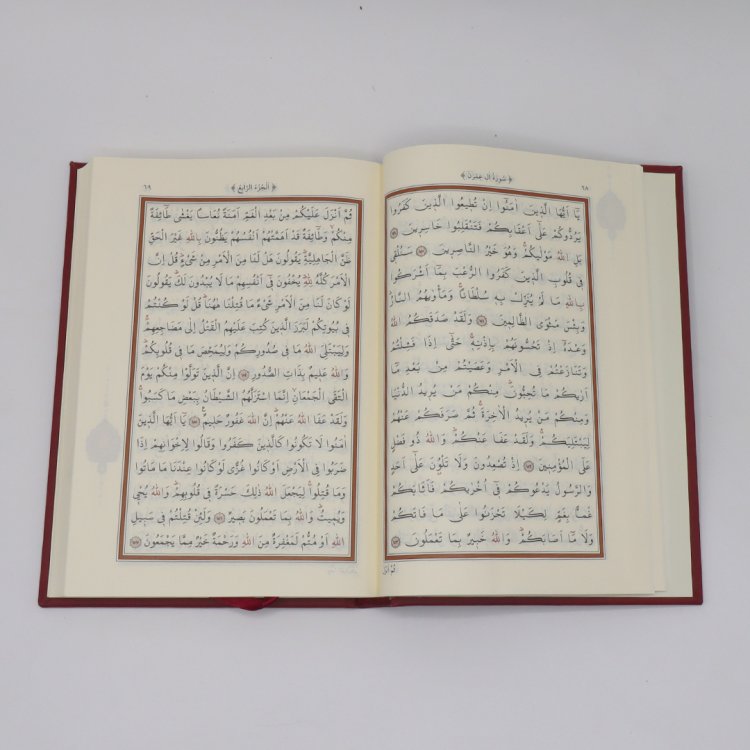 ﴿ سُورَةُ اٰلِ عِمْرٰنَ ﴾
٦٨
يَٓا اَيُّهَا الَّذ۪ينَ اٰمَنُٓوا اِنْ تُط۪يعُوا الَّذ۪ينَ كَفَرُوا
يَرُدُّوكُمْ عَلٰٓى اَعْقَابِكُمْ فَتَنْقَلِبُوا خَاسِر۪ينَ ﴿١٤٩﴾
بَلِ اللّٰهُ مَوْلٰيكُمْۚ وَهُوَ خَيْرُ النَّاصِر۪ينَ ﴿١٥٠﴾ سَنُلْق۪ي
ف۪ي قُلُوبِ الَّذ۪ينَ كَفَرُوا الرُّعْبَ بِمَٓا اَشْرَكُوا
بِاللّٰهِ مَا لَمْ يُنَزِّلْ بِه۪ سُلْطَانًاۚ وَمَأْوٰيهُمُ النَّارُۜ
وَبِئْسَ مَثْوَى الظَّالِم۪ينَ ﴿١٥١﴾ وَلَقَدْ صَدَقَكُمُ اللّٰهُ
وَعْدَهُٓ اِذْ تَحُسُّونَهُمْ بِاِذْنِه۪ۚ حَتّٰٓى اِذَا فَشِلْتُمْ
وَتَنَازَعْتُمْ فِي الْاَمْرِ وَعَصَيْتُمْ مِنْ بَعْدِ مَٓا
اَرٰيكُمْ مَا تُحِبُّونَۜ مِنْكُمْ مَنْ يُر۪يدُ الدُّنْيَا
وَمِنْكُمْ مَنْ يُر۪يدُ الْاٰخِرَةَۚ ثُمَّ صَرَفَكُمْ عَنْهُمْ
لِيَبْتَلِيَكُمْۚ وَلَقَدْ عَفَا عَنْكُمْۜ وَاللّٰهُ ذُو فَضْلٍ
عَلَى الْمُؤْمِن۪ينَ ﴿١٥٢﴾ اِذْ تُصْعِدُونَ وَلَا تَلْوُ۫نَ عَلٰٓى اَحَدٍ
وَالرَّسُولُ يَدْعُوكُمْ ف۪ٓي اُخْرٰيكُمْ فَاَثَابَكُمْ
غَمًّا بِغَمٍّ لِكَيْلَا تَحْزَنُوا عَلٰى مَا فَاتَكُمْ
وَلَا مَٓا اَصَابَكُمْۜ وَاللّٰهُ خَب۪يرٌ بِمَا تَعْمَلُونَ ﴿١٥٣﴾
ثُمَّ اَنْزَلَ
٦٩
﴿ اَلْجُزْءُ الرَّابِعُ ﴾
ثُمَّ اَنْزَلَ عَلَيْكُمْ مِنْ بَعْدِ الْغَمِّ اَمَنَةً نُعَاسًا يَغْشٰى طَٓائِفَةً
مِنْكُمْۙ وَطَٓائِفَةٌ قَدْ اَهَمَّتْهُمْ اَنْفُسُهُمْ يَظُنُّونَ بِاللّٰهِ غَيْرَ الْحَقِّ
ظَنَّ الْجَاهِلِيَّةِۜ يَقُولُونَ هَلْ لَنَا مِنَ الْاَمْرِ مِنْ شَيْءٍۜ قُلْ اِنَّ
الْاَمْرَ كُلَّهُ لِلّٰهِۜ يُخْفُونَ ف۪ٓي اَنْفُسِهِمْ مَا لَا يُبْدُونَ لَكَۜ يَقُولُونَ
لَوْ كَانَ لَنَا مِنَ الْاَمْرِ شَيْءٌ مَا قُتِلْنَا هٰهُنَاۜ قُلْ لَوْ كُنْتُمْ
ف۪ي بُيُوتِكُمْ لَبَرَزَ الَّذ۪ينَ كُتِبَ عَلَيْهِمُ الْقَتْلُ اِلٰى مَضَاجِعِهِمْۚ
وَلِيَبْتَلِيَ اللّٰهُ مَا ف۪ي صُدُورِكُمْ وَلِيُمَحِّصَ مَا ف۪ي قُلُوبِكُمْۜ
وَاللّٰهُ عَل۪يمٌ بِذَاتِ الصُّدُورِ ﴿١٥٤﴾ اِنَّ الَّذ۪ينَ تَوَلَّوْا مِنْكُمْ يَوْمَ
الْتَقَى الْجَمْعَانِۙ اِنَّمَا اسْتَزَلَّهُمُ الشَّيْطَانُ بِبَعْضِ مَا كَسَبُواۚ
وَلَقَدْ عَفَا اللّٰهُ عَنْهُمْۜ اِنَّ اللّٰهَ غَفُورٌ حَل۪يمٌ۟ ﴿١٥٥﴾ يَٓا اَيُّهَا الَّذ۪ينَ
اٰمَنُوا لَا تَكُونُوا كَالَّذ۪ينَ كَفَرُوا وَقَالُوا لِاِخْوَانِهِمْ اِذَا
ضَرَبُوا فِي الْاَرْضِ اَوْ كَانُوا غُزًّى لَوْ كَانُوا عِنْدَنَا مَا مَاتُوا
وَمَا قُتِلُواۚ لِيَجْعَلَ اللّٰهُ ذٰلِكَ حَسْرَةً ف۪ي قُلُوبِهِمْۜ وَاللّٰهُ يُحْي۪
وَيُم۪يتُۜ وَاللّٰهُ بِمَا تَعْمَلُونَ بَص۪يرٌ ﴿١٥٦﴾ وَلَئِنْ قُتِلْتُمْ ف۪ي سَب۪يلِ
اللّٰهِ اَوْ مُتُّمْ لَمَغْفِرَةٌ مِنَ اللّٰهِ وَرَحْمَةٌ خَيْرٌ مِمَّا يَجْمَعُونَ ﴿١٥٧﴾